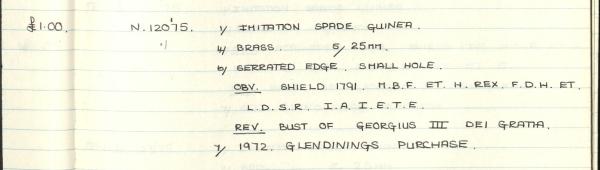 £1.00. N.12075. 1/ IMITATION SPADE GUINEA.
4/ BRASS. 5/ 25MM.
6/ SERRATED EDGE. SMALL HOLE.
OBV. SHIELD 1791. M.B.F. ET. H. REX. F.D.H. ET.
L.D.S.R. I.A. I.E.T.E.
REV. BUST OF GEORGIUS III DEI GRATIA.
7/ 1972. GLENDININGS PURCHASE.